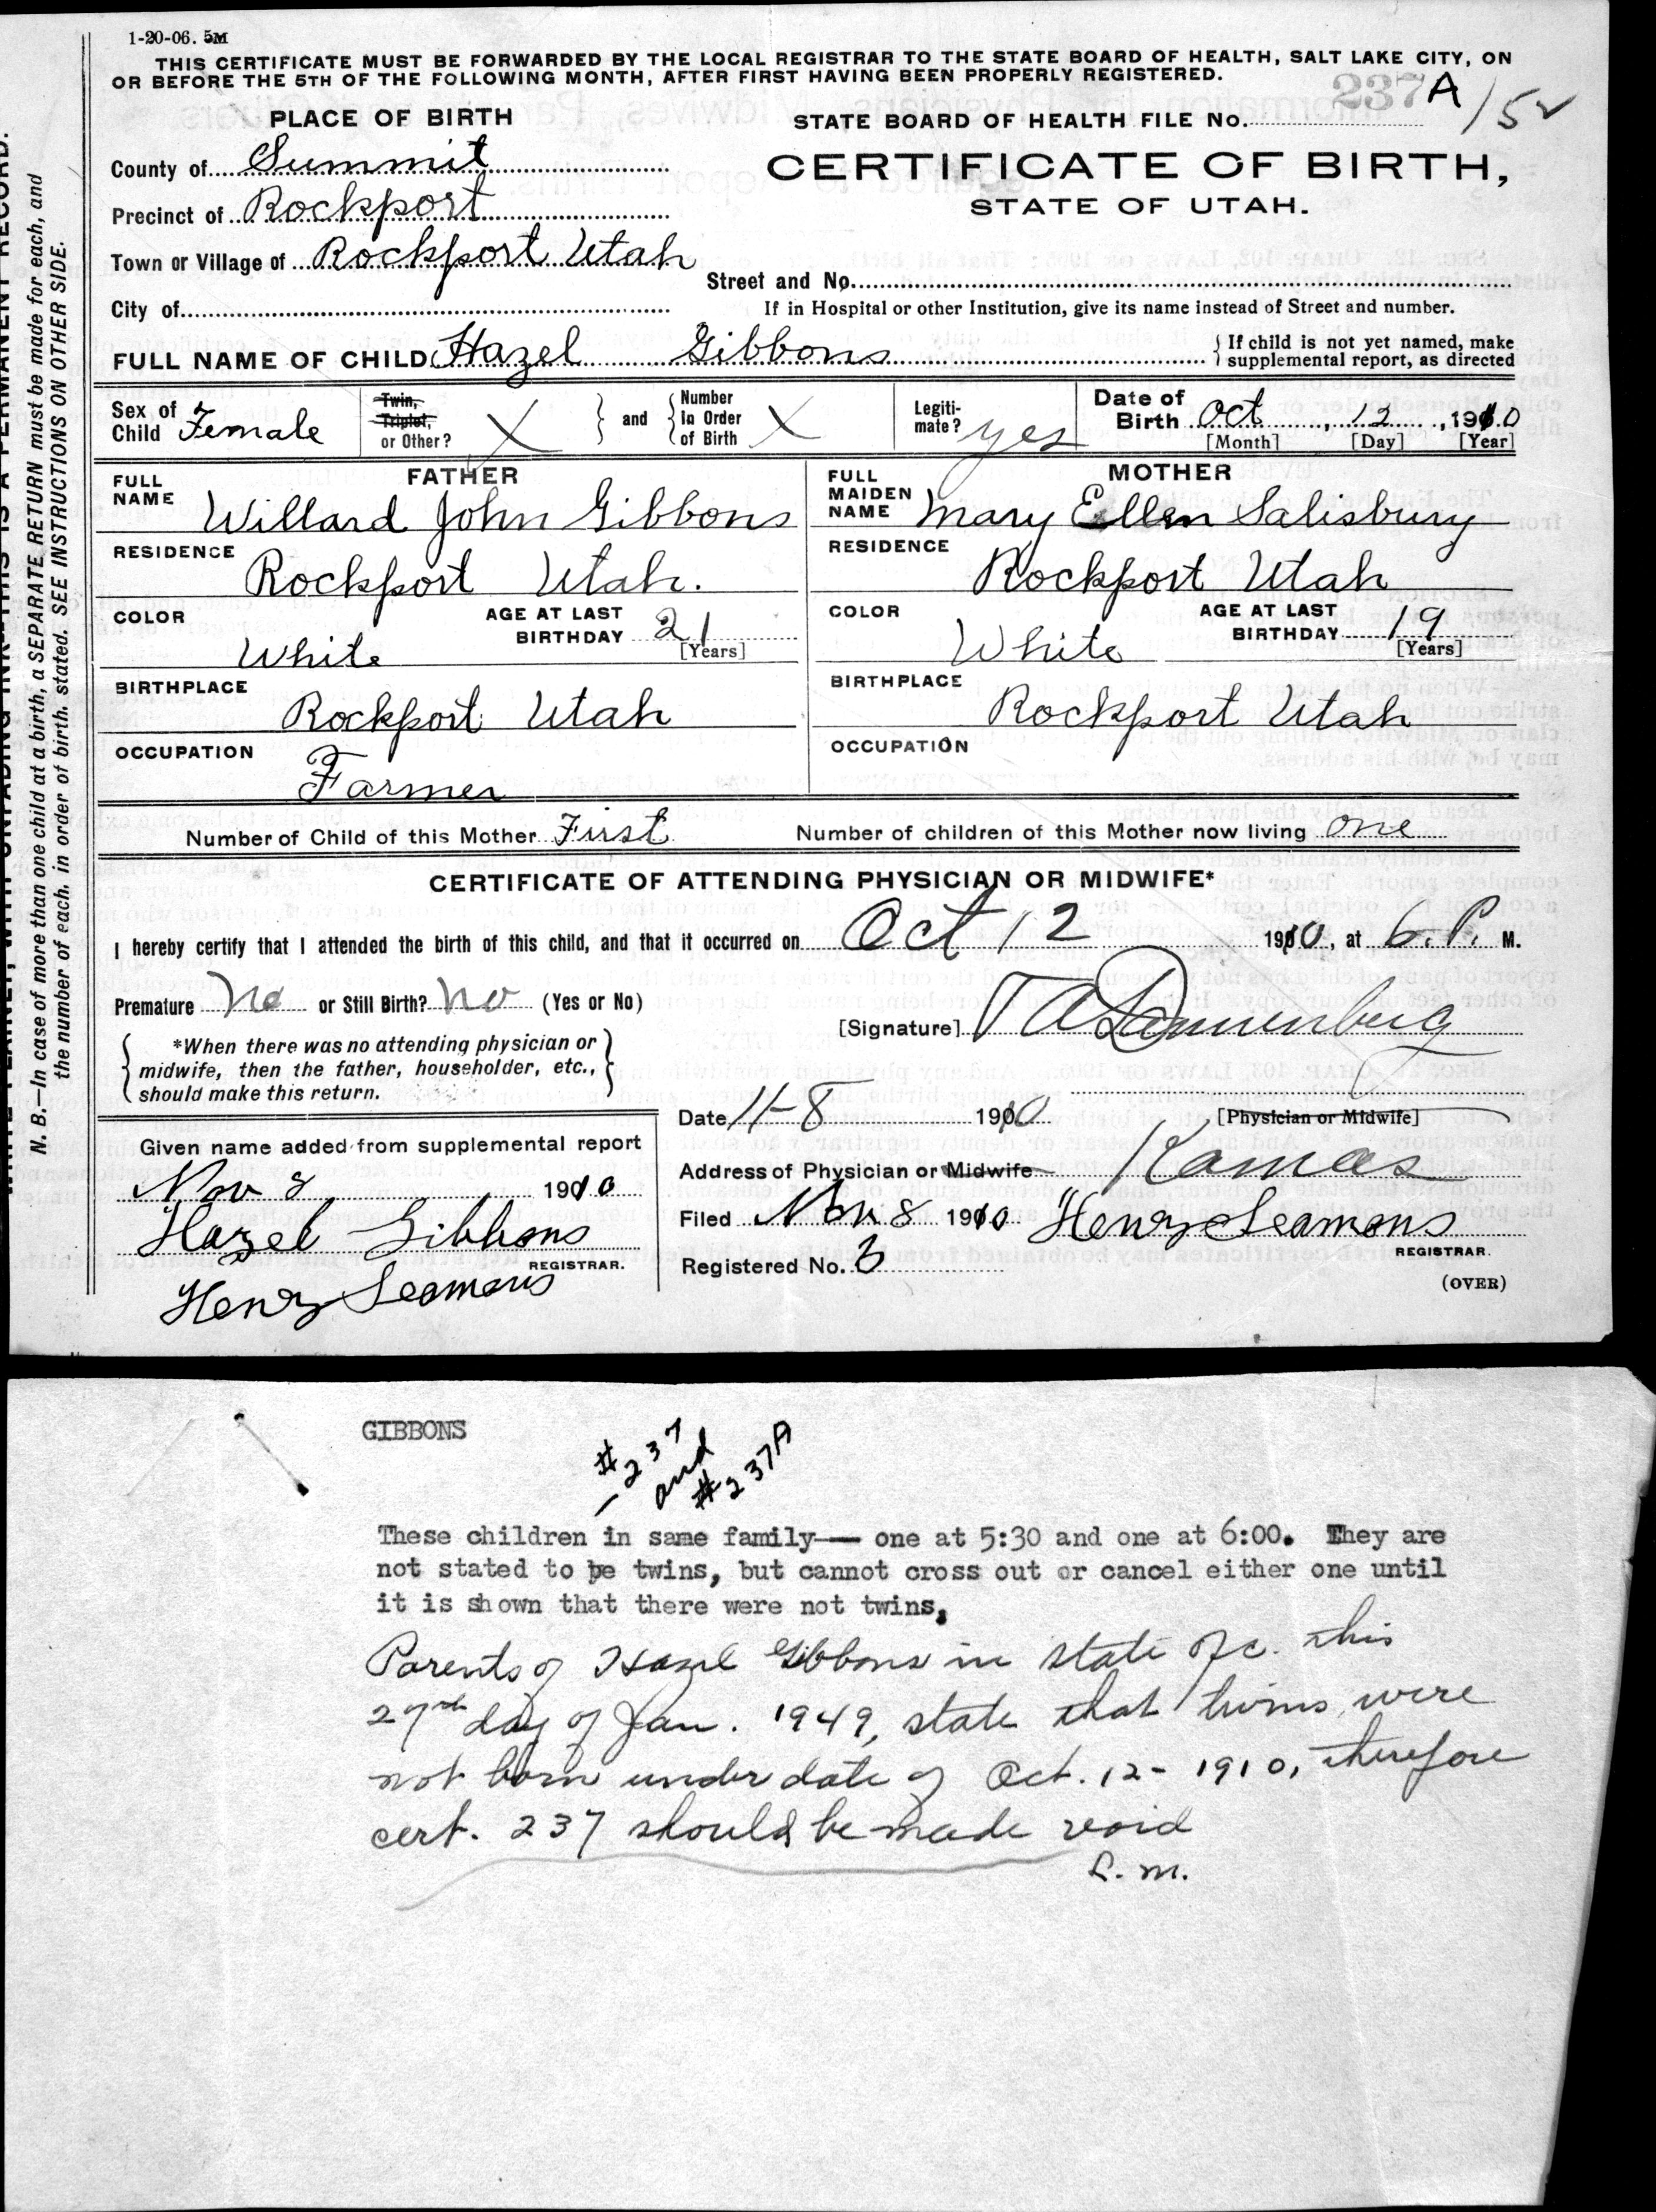 1-20-06. 5M
THIS CERTIFICATE MUST BE FORWARDED BY THE LOCAL REGISTRAR TO THE STATE BOARD OF HEALTH, SALT LAKE CITY, ON
OR BEFORE THE 5TH OF THE FOLLOWING MONTH, AFTER FIRST HAVING BEEN PROPERLY REGISTERED.
237A
152
PLACE OF BIRTH
STATE BOARD OF HEALTH FILE No.
County of Summit
CERTIFICATE OF BIRTH,
Precinct of Rockport
STATE OF UTAH.
Town or Village of Rockport Utah
Street and No.
City of
If in Hospital or other Institution, give its name instead of Street and number.
FULL NAME OF CHILD Hazel Gibbons
If child is not yet named, make
supplemental report, as directed
Sex of
Child Female
Twin,
Triplet,
or Other? X
and
Number
in Order
of Birth X
Legiti-
mate? yes
Date of
Birth Oct, 12, 1910
[Month] [Day] [Year]
FATHER
FULL
NAME Willard John Gibbons
RESIDENCE
Rockport Utah.
COLOR
White
AGE AT LAST
BIRTHDAY 21
[Years]
BIRTHPLACE
Rockport Utah
OCCUPATION
Farmer
MOTHER
FULL
MAIDEN
NAME Mary Ellen Salisbury
RESIDENCE
Rockport Utah
COLOR
White
AGE AT LAST
BIRTHDAY 19
[Years]
BIRTHPLACE
Rockport Utah
OCCUPATION
Number of Child of this Mother First
Number of children of this Mother now living one
CERTIFICATE OF ATTENDING PHYSICIAN OR MIDWIFE*
I hereby certify that I attended the birth of this child, and that it occurred on Oct 12 1910, at 6. P. M.
Premature No or Still Birth? No (Yes or No)
[Signature] T A Dannenberg
*When there was no attending physician or
midwife, then the father, householder, etc.,
should make this return.
Date 11-8 1910
[Physician or Midwife]
Given name added from supplemental report
Nov 8 1910
Hazel Gibbons
REGISTRAR.
Henry Seamons
Address of Physician or Midwife Kamas
Filed Nov 8 1910 Henry Seamons
REGISTRAR.
Registered No. 3
(OVER)
N. B.—In case of more than one child at a birth, a SEPARATE RETURN must be made for each, and
the number of each, in order of birth, stated. SEE INSTRUCTIONS ON OTHER SIDE.
GIBBONS
#237
and
#237A
These children in same family— one at 5:30 and one at 6:00. They are
not stated to be twins, but cannot cross out or cancel either one until
it is shown that there were not twins,
Parents of Hazel Gibbons in state ofc. this
27th day of Jan. 1949, state that twins were
not born under date of Oct. 12- 1910, therefore
cert. 237 should be made void
L. M.